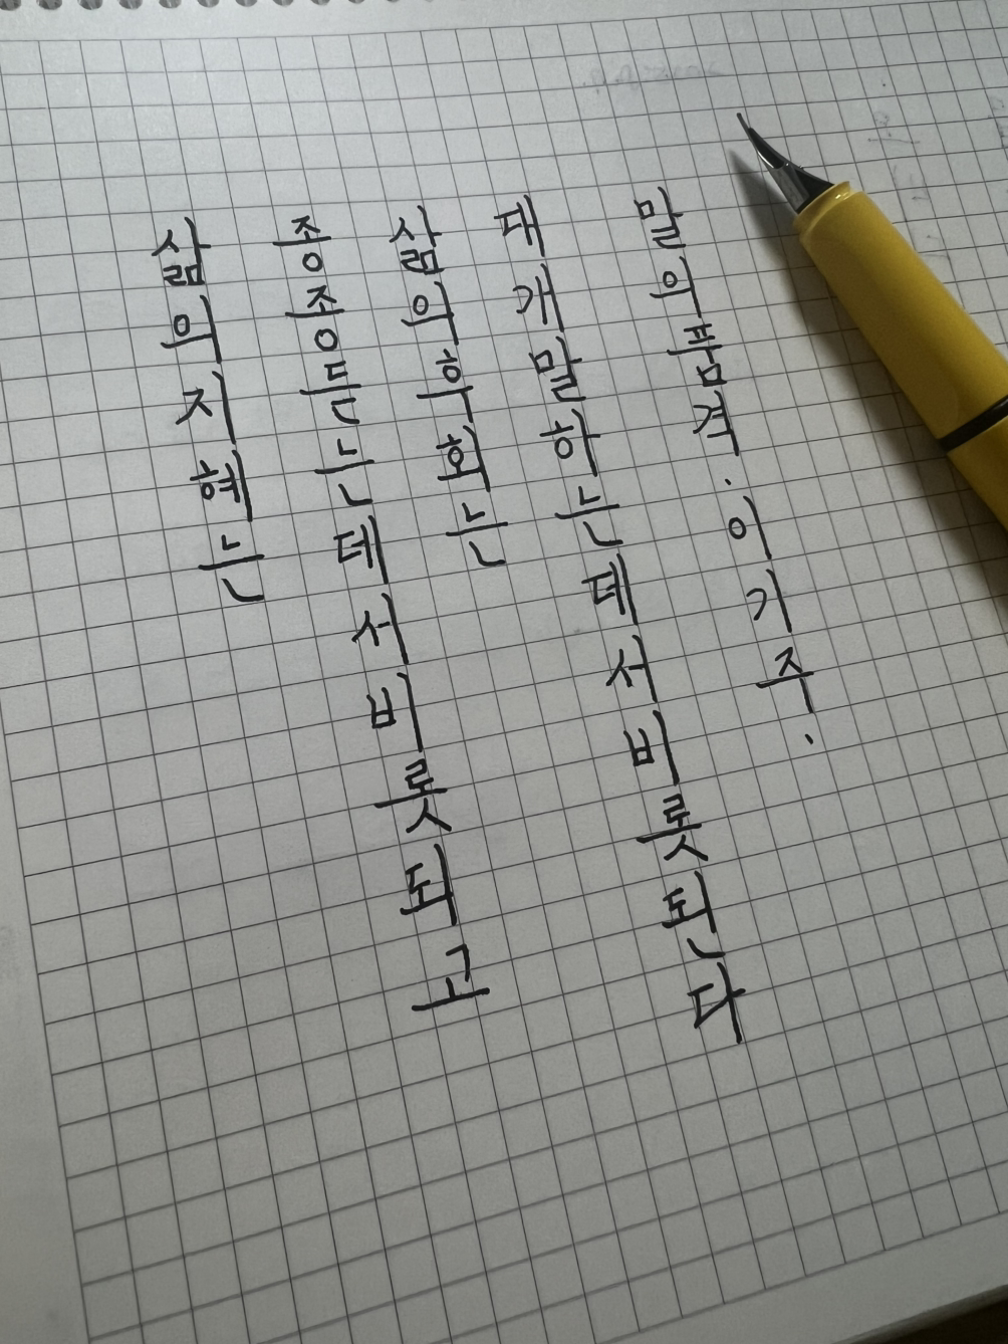 삶의지혜는
종종듣는데서비롯되고
삶의후회는
대개말하는데서비롯된다
말의품격.이기주.